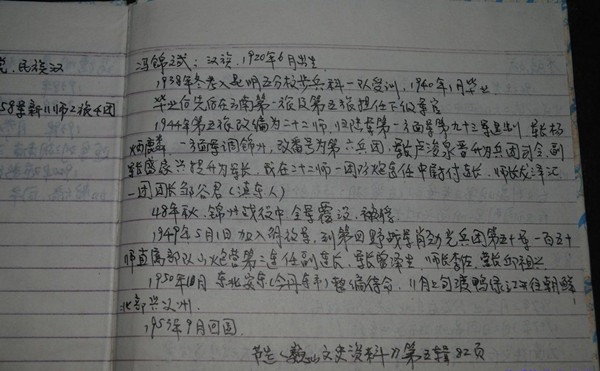 民族汉
58军新11师2旅4团
冯锦斌：汉族，1920年6月出生
1938年冬考入昆明五分校步兵科一队受训，1940年1月毕业
毕业后先后在云南第一旅及第五旅担任下级军官
1944年第五旅改编为二十二师，归陆军第一方面军第九十三军
一方面军调锦州，改番号为第六兵团，卢浚泉晋升为兵团司令，副
军长盛家兴提升为军长，我在二十二师一团防炮连任中尉付连长，师长龙泽汇
一团团长邹谷君（滇东人）
48年秋，锦州战役中全军覆没，被俘
1949年5月1日加入解放军，到第四野战军肖劲光兵团第五十军一百五十
师直属部队山炮营第三连任副连长，军长曾泽生
1950年10月 东北安东（今丹东市）整编待命，11月上旬渡鸭绿江
北部义州
1955年9月回国
文史资料》第五辑82页